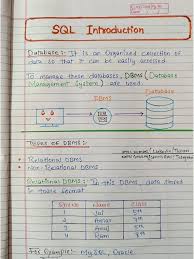 SQL Introduction
Database :- It is an Organized collection of
data so that it can be easily accessed
To manage these databases, DBMS (Database
Management System) are used
Database
DBMS
Types of DBMS :-
Relational DBMS
Non-Relational DBMS
Relational DBMS :- In this DBMS, data stored
in table format
Name Class
1 5th
2 Amit
3
For Example :- MySQL, Oracle